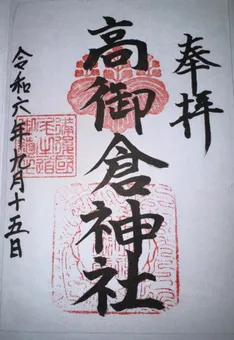 奉拝
高御倉神社
令和六年九月十五日